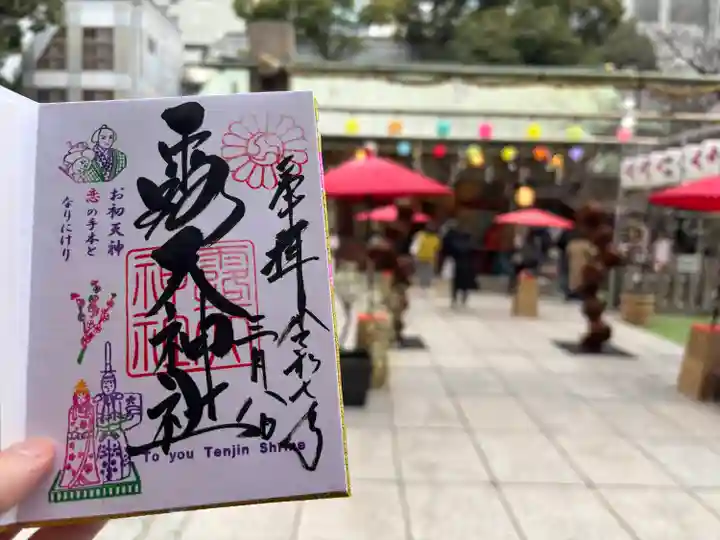 奉拝
令和七年
三月八日
露天神社
露天
神社
お初天神
恋の手本と
なりにけり
To you Tenjin Shrine